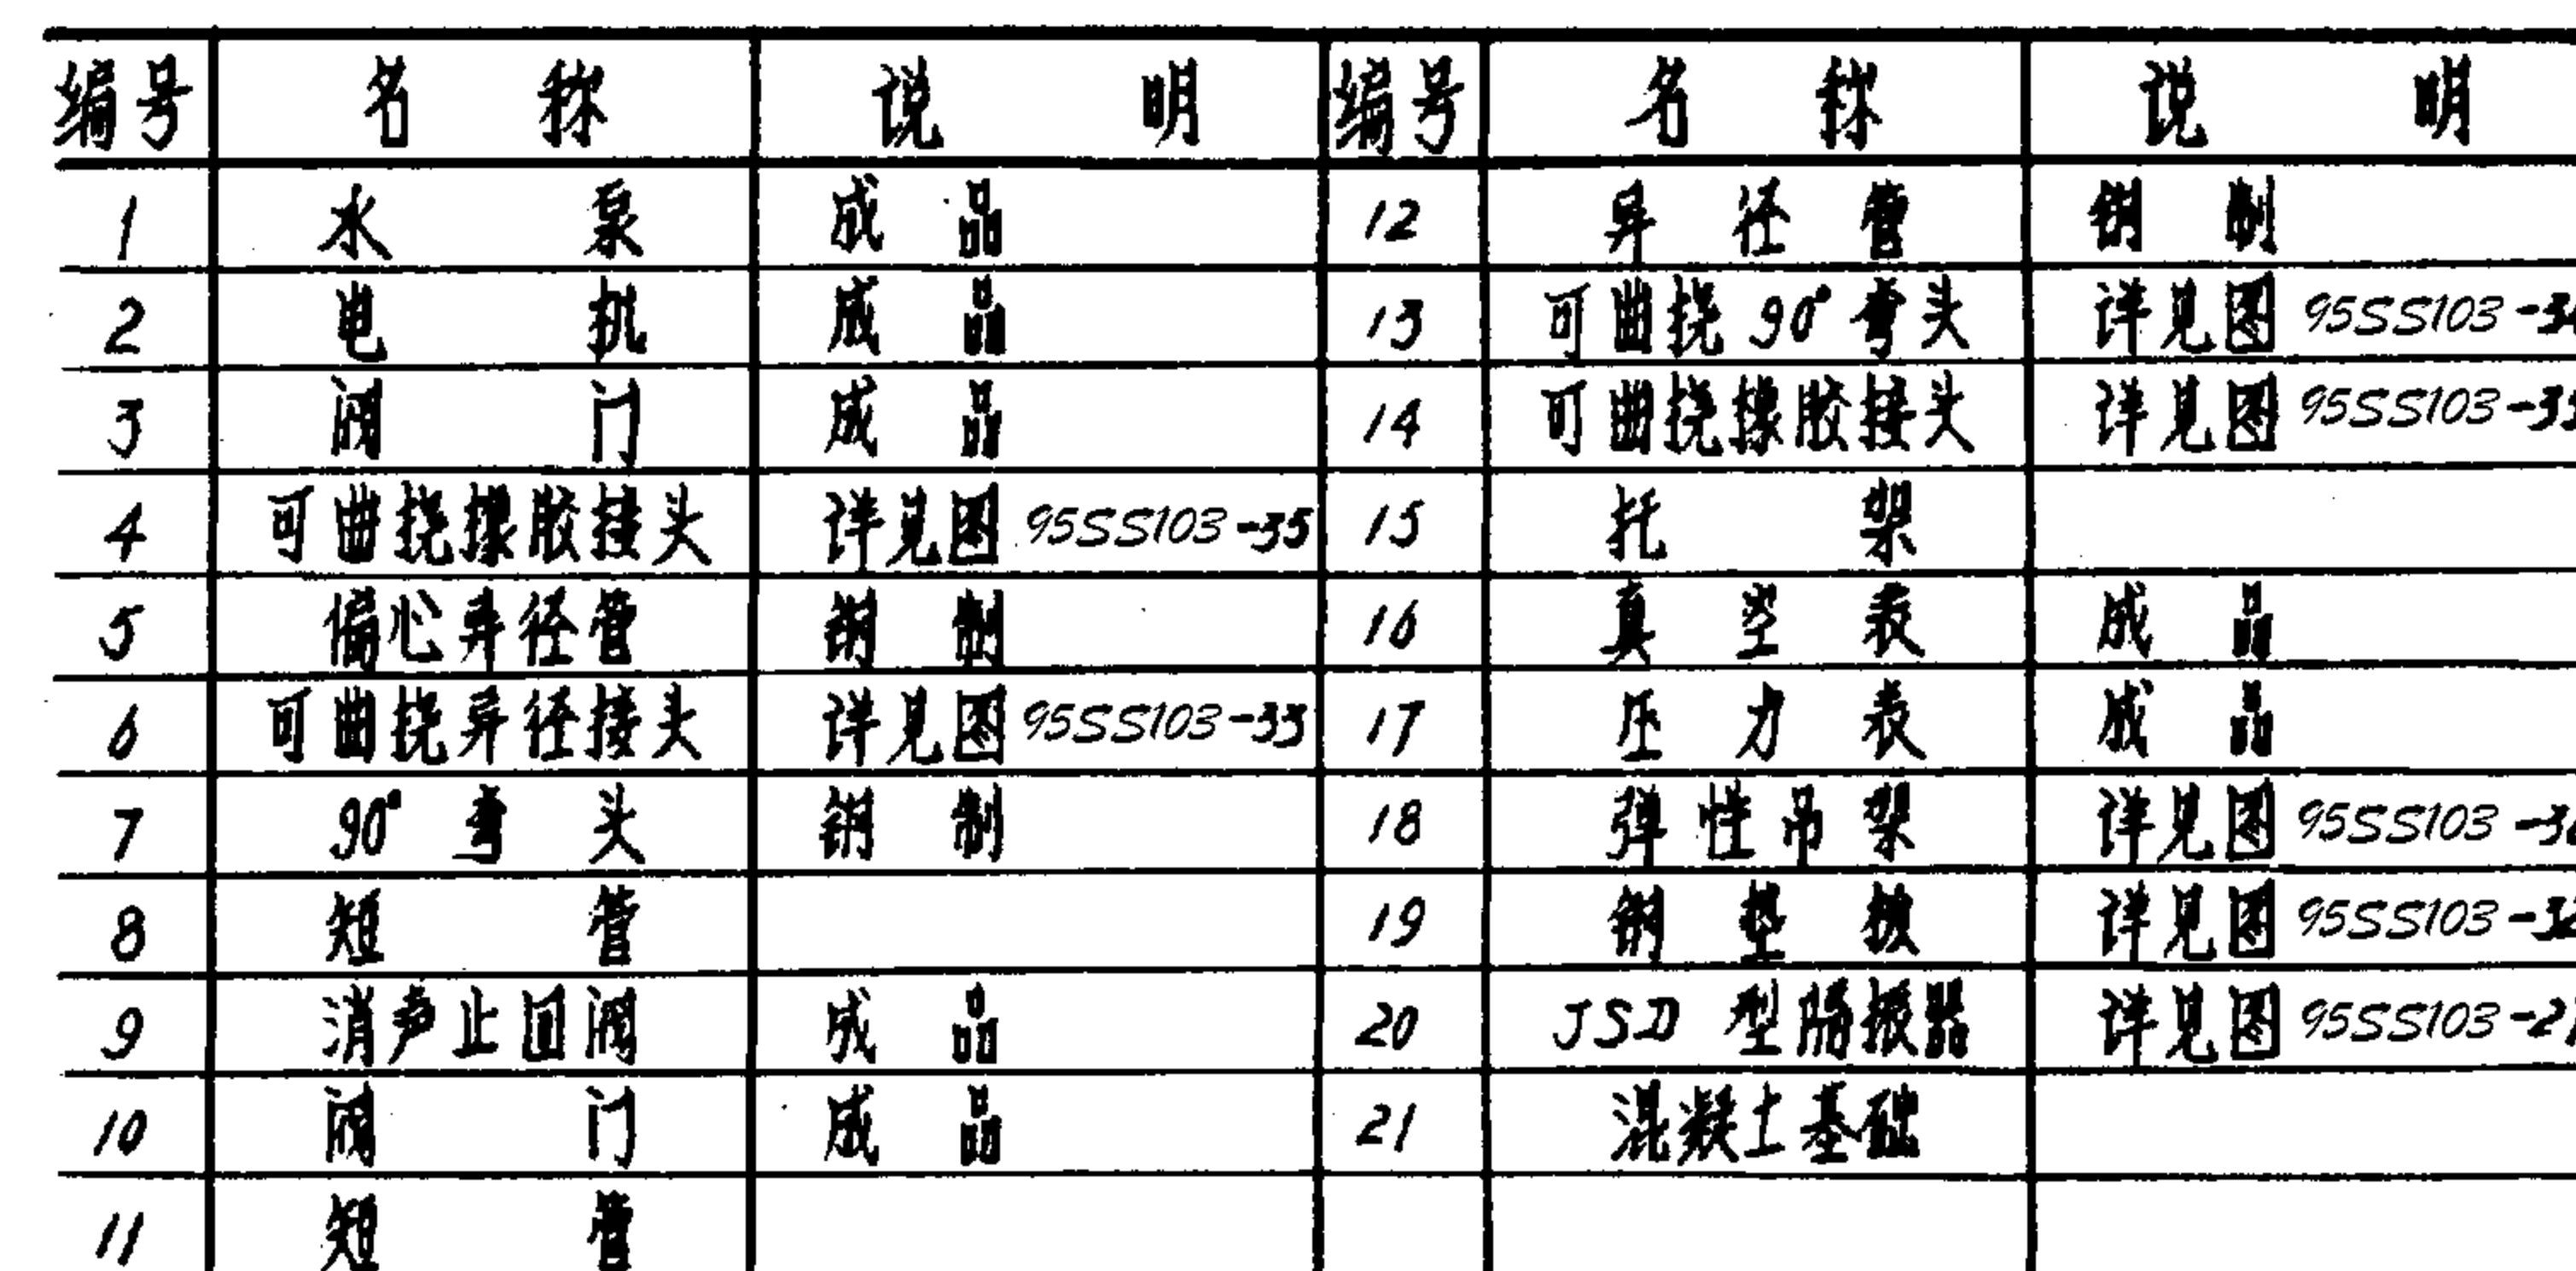 编号 名称 说明 编号 名称 说明
1 水泵 成品 12 异径管 钢制
2 电机 成品 13 可曲挠90°弯头 详见图 95SS103
3 阀门 成品 14 可曲挠橡胶接头 详见图 95SS103
4 可曲挠橡胶接头 详见图 95SS103-35 15 托架
5 偏心异径管 钢制 16 真空表 成品
6 可曲挠异径接头 详见图 95SS103-33 17 压力表 成品
7 90°弯头 钢制 18 弹性吊架 详见图 95SS103
8 短管 19 钢垫板 详见图 95SS103
9 消声止回阀 成品 20 JSD型隔振器 详见图 95SS103
10 阀门 成品 21 混凝土基础
11 短管